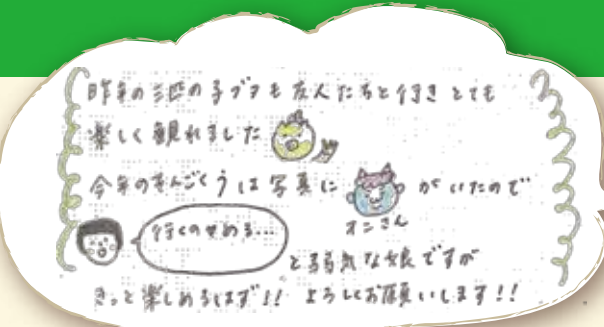 昨年の三匹の子ブタも友人たちと行きとても
楽しく観れました
今年のそんごくうは写真に がいたので
オニさん
行くのやめる…
と弱気な娘ですが
きっと楽しめるはず!! よろしくお願いします!!